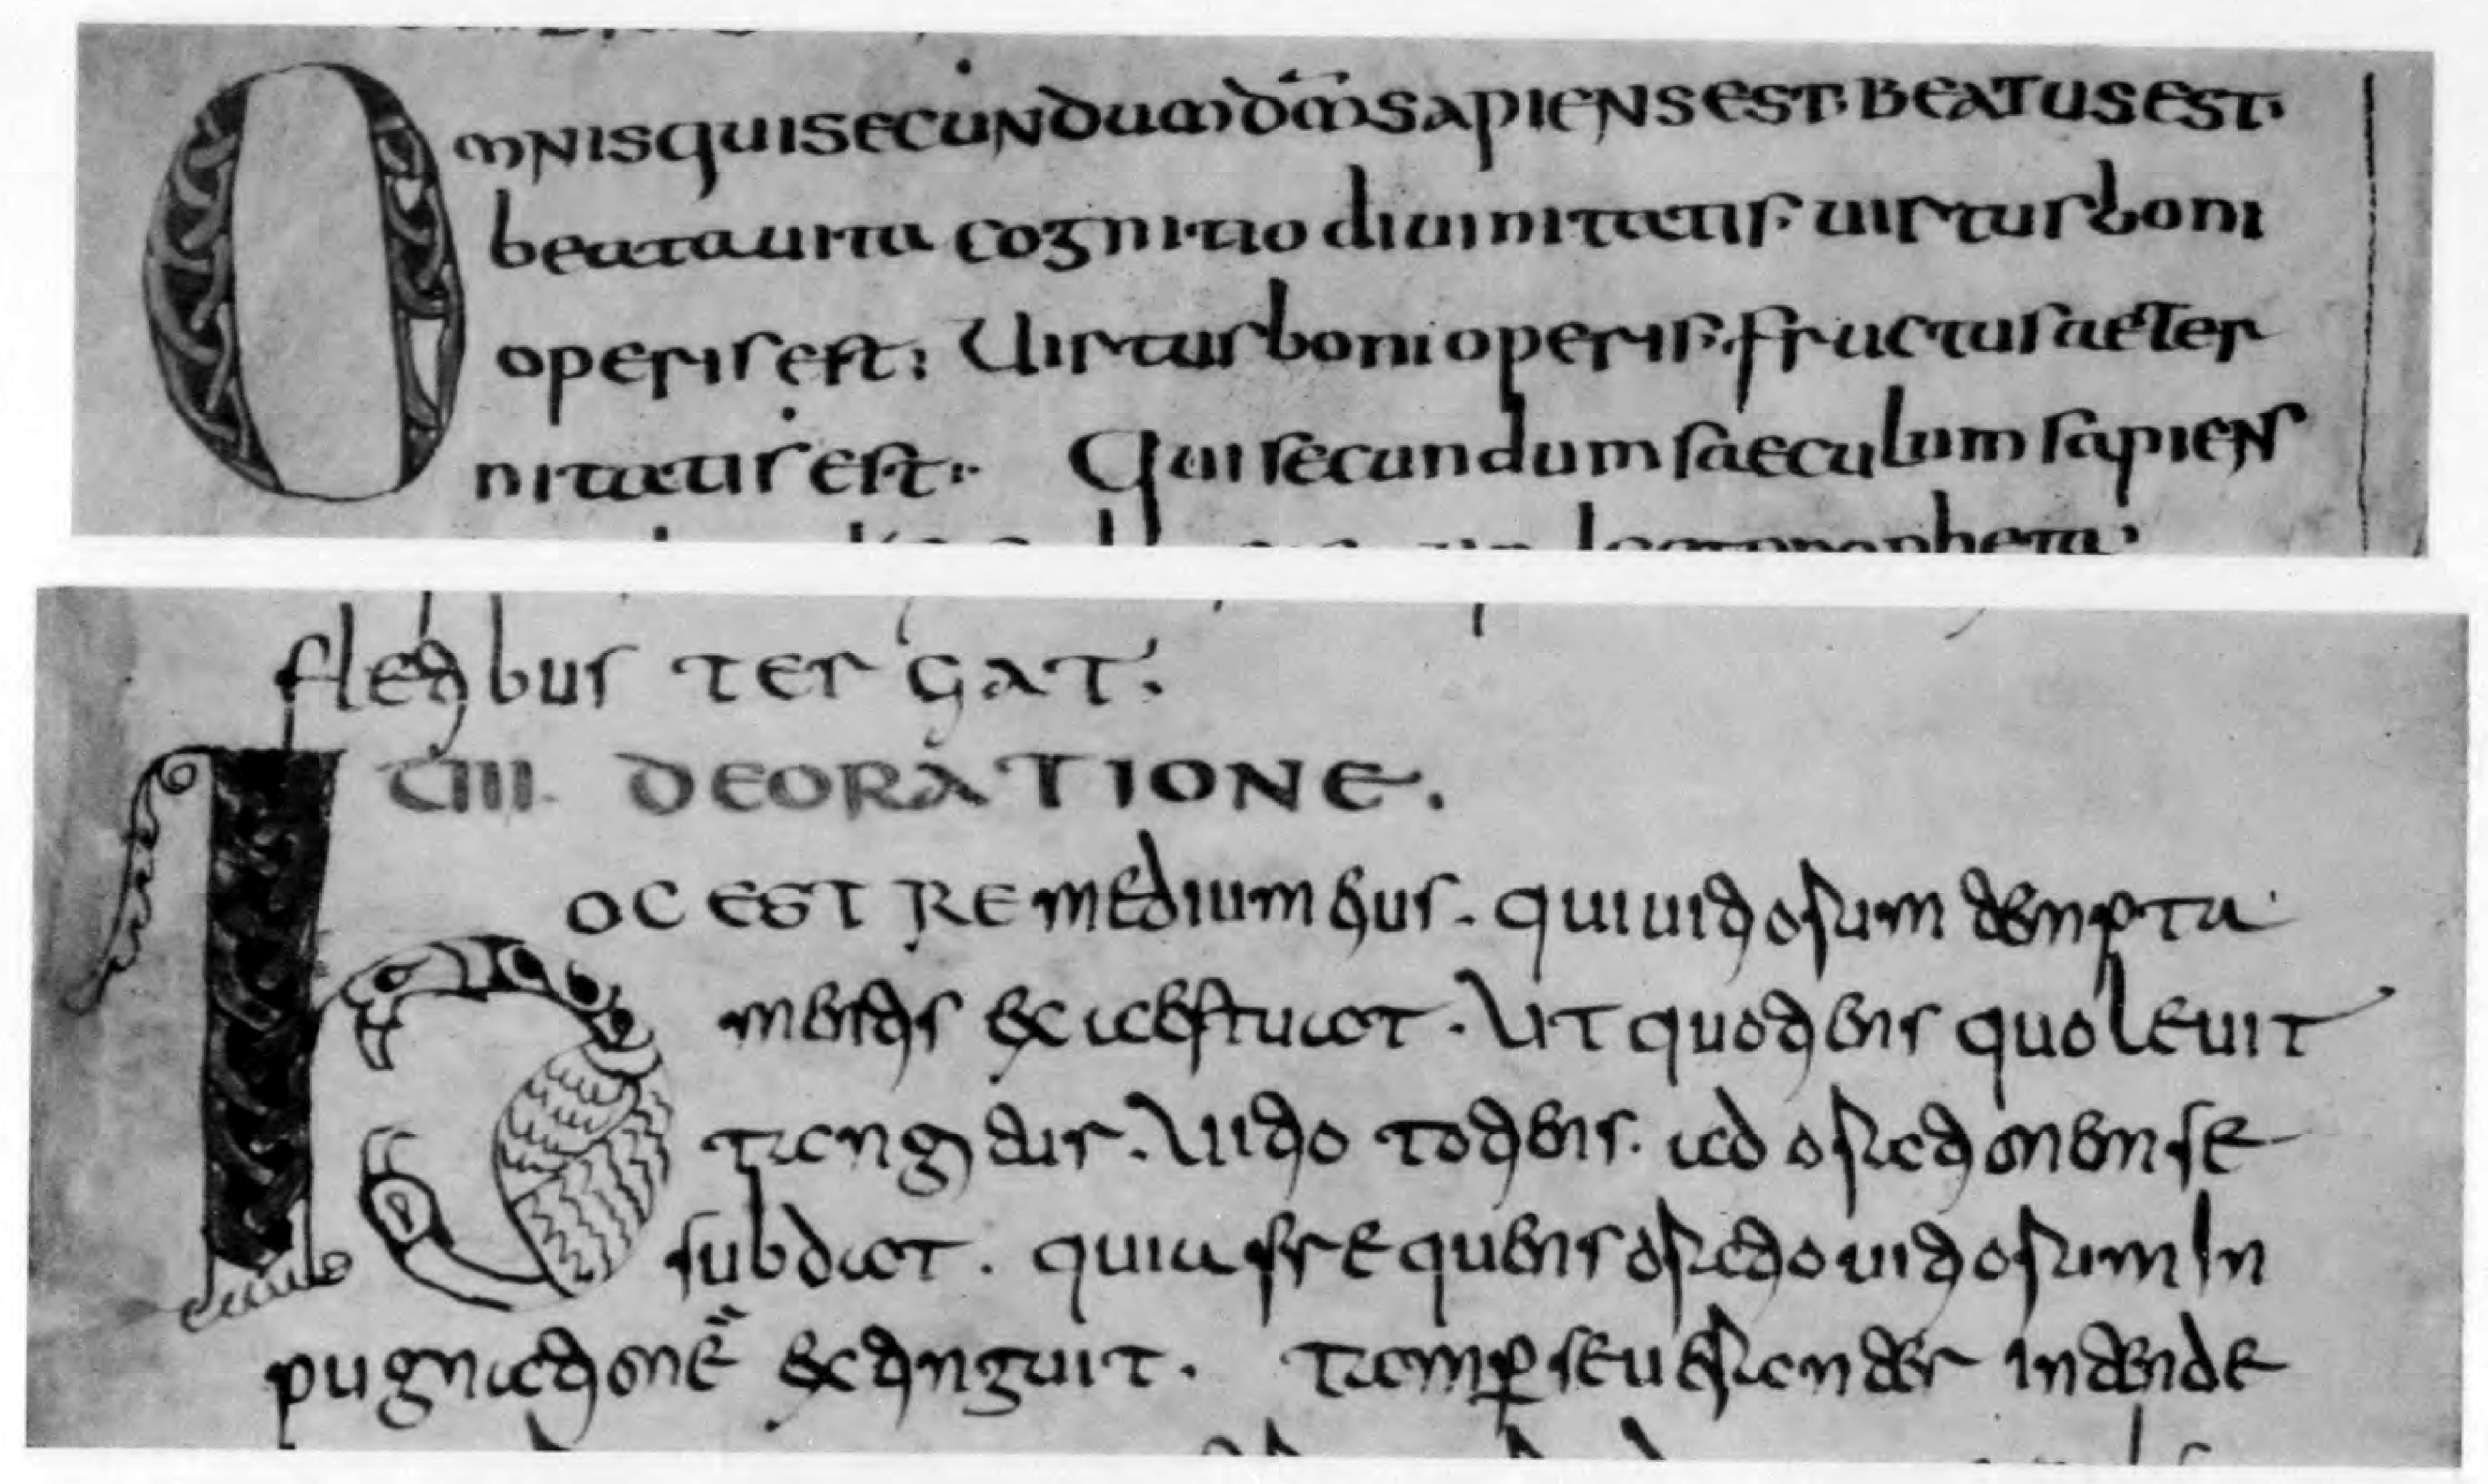 OMNIS QUI SECUNDUM DM̄ SAPIENS EST· BEATUS EST·
beata uita cognitio diuinitatis· uirtus boni
operis est; Uirtus boni operis· fructus aeter
nitatis est; Qui secundum saeculum sapiens
fletibus tergat.
CIII. DE ORATIONE.
HOC EST REmedium eius. qui uitiorum tempta
mentis exaestuat. Ut quotiens quoleuit
tangetur. Uitio totiens. ad orationem se
subdat. quia frequens oratio uitiorum In
pugnationē extinguit. tam perseueranter intende